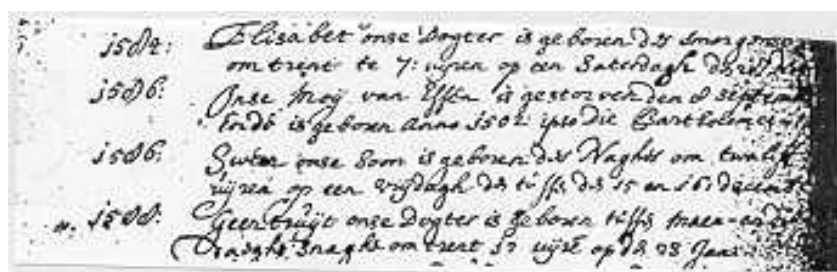 1584: Elisabet onse Dogter is geboren des smorgens
om trent te 7: uijren op een Saterdagh
1586: Onse Moij van Essen is gestorven den 8 Septem
Ende is geboren Anno 1502 ipso die Bartholomei
1586: onse Soon is geboren des Naghts om twaliff
uijren op een Vrijdagh 15 en 16 decem
1588: Geertruijt onse Dogter is geboren tusse Maen-
Daeghs Snaghs om trent 12 uijre op de 28 Jan